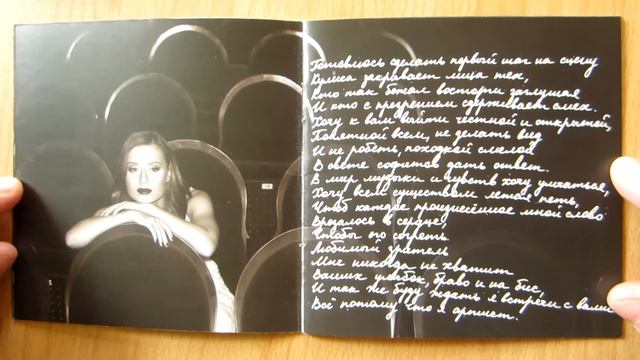 Готовлюсь сделать первый шаг на сцену
Кулиса закрывает лица тех,
Кто так бежал восторги заглушая
И кто с презрением сдерживает смех.
Хочу к вам выйти честной и открытой,
Понятной всем, не делать вид
И не робеть, походкой смелой
В свете софитов дать ответ.
В мир музыки и чувств хочу умчаться,
Хочу всем существом летая петь,
Чтоб каждое произнесённое мной слово
Врезалось в сердце,
Чтобы его согреть.
Любимый зритель
Мне никогда не хватит
Ваших улыбок, браво и на бис,
И так же буду ждать я встречи с вами
Всё потому что я артист.